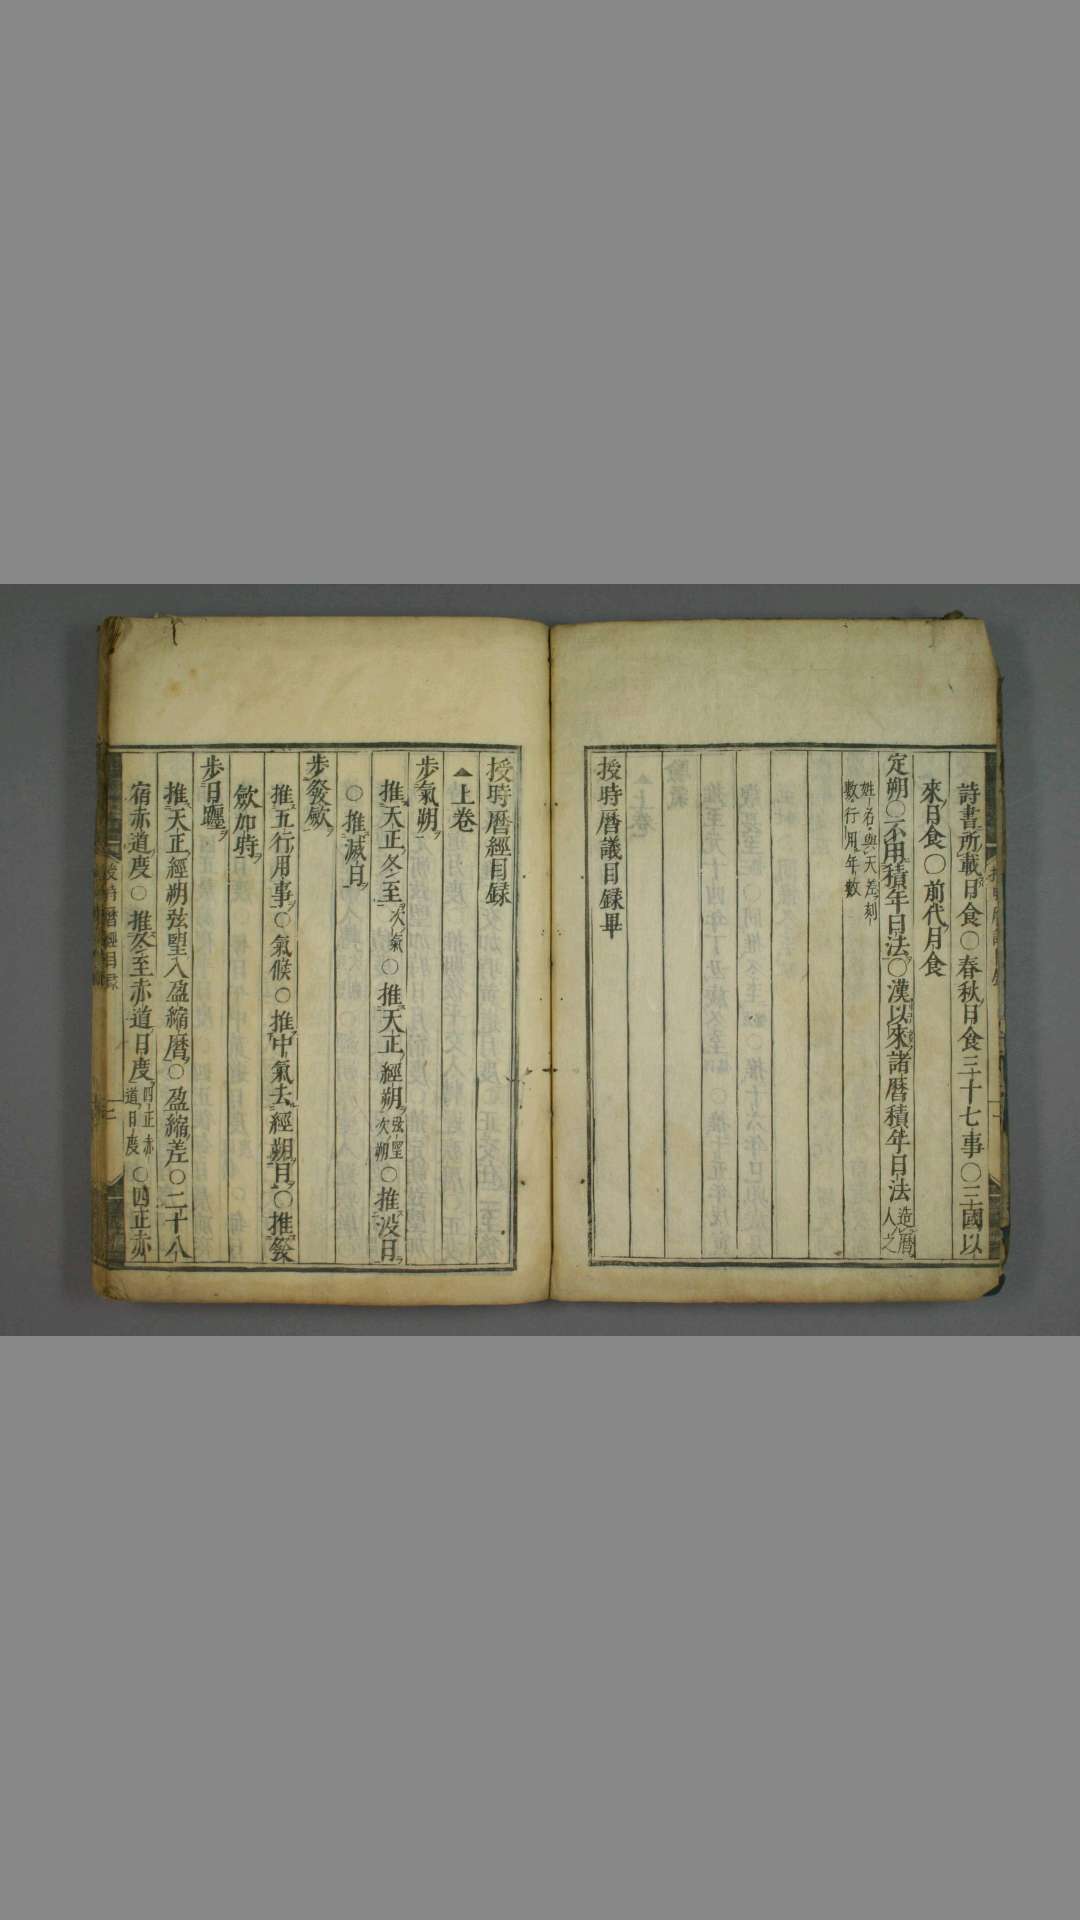 詩書所載日食○春秋日食三十七事○三國以
來日食○前代月食
定朔○不用積年日法○漢以來諸曆積年日法造曆人之
姓名與天差刻數行用年數
授時曆議目録畢
授時曆經目録
上卷
步氣朔
推天正冬至次氣○推天正經朔弦望次朔○推没日
○推滅日
步發歛
推五行用事○氣候○推中氣去經朔○推發
歛加時
步日躔
推天正經朔弦望入盈縮曆○盈縮差○二十八
宿赤道度○推冬至赤道日度四正赤道日度○四正赤
授時曆經目録